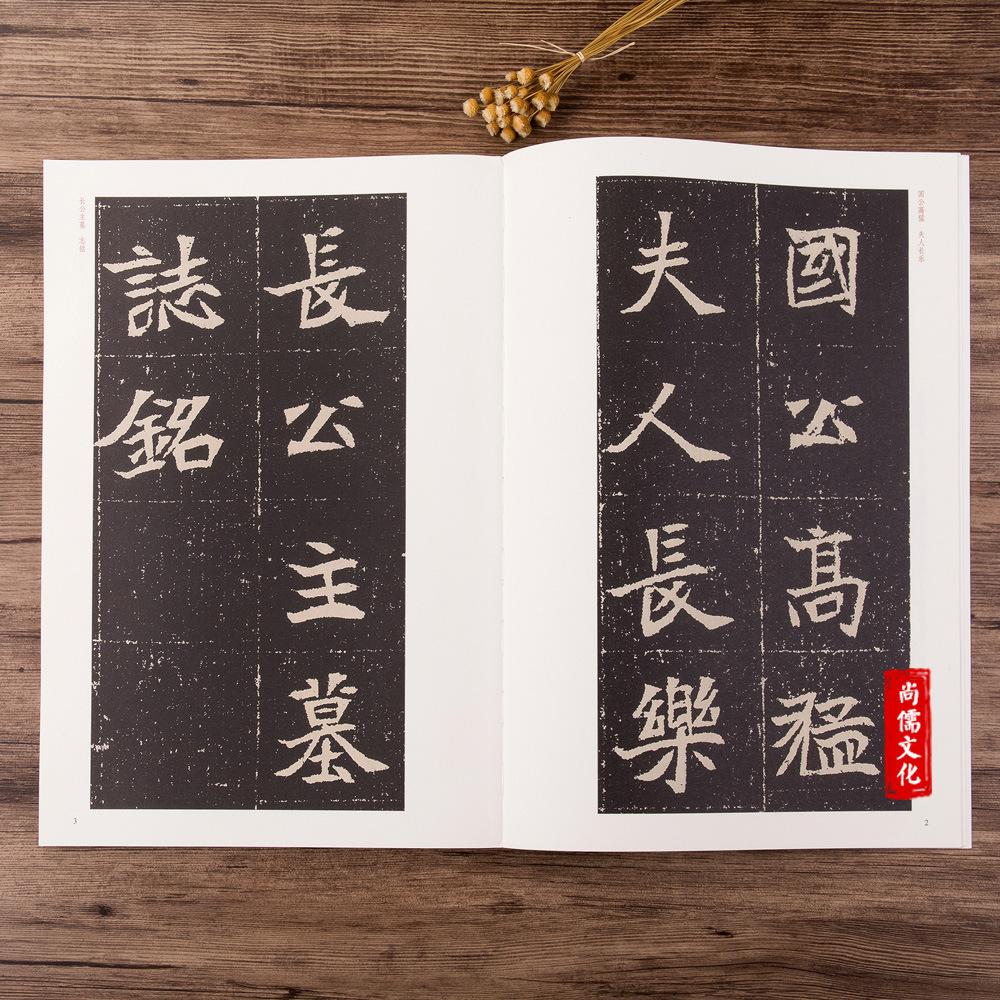 国公高猛 夫人长乐
國公高猛
夫人長樂
2
尚儒文化
長公主墓
誌銘
长公主墓 志铭
3